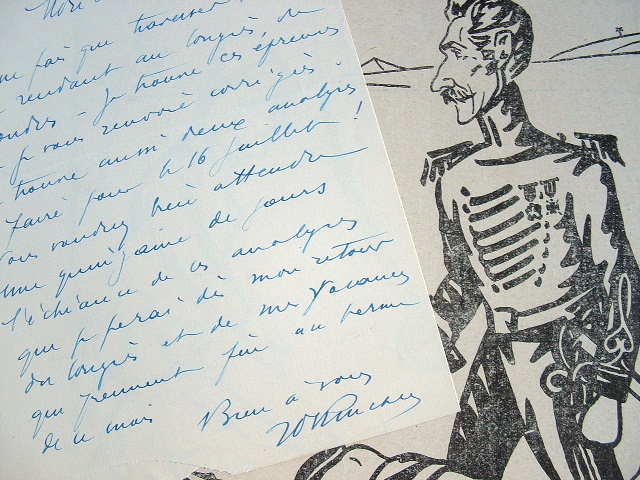 fais que traverser
rendant au Congrès, de
Londres - Je trouve ces épreuves
Je vous renvoie corrigés.
trouve aussi deux analyses
faire pour le 16 juillet !
Vous voudrez bien attendre
une quinzaine de jours
l'échéance de ces analyses
que je ferai dès mon retour
du Congrès et de mes Vacances
qui prennent fin au terme
de ce mois Bien à vous